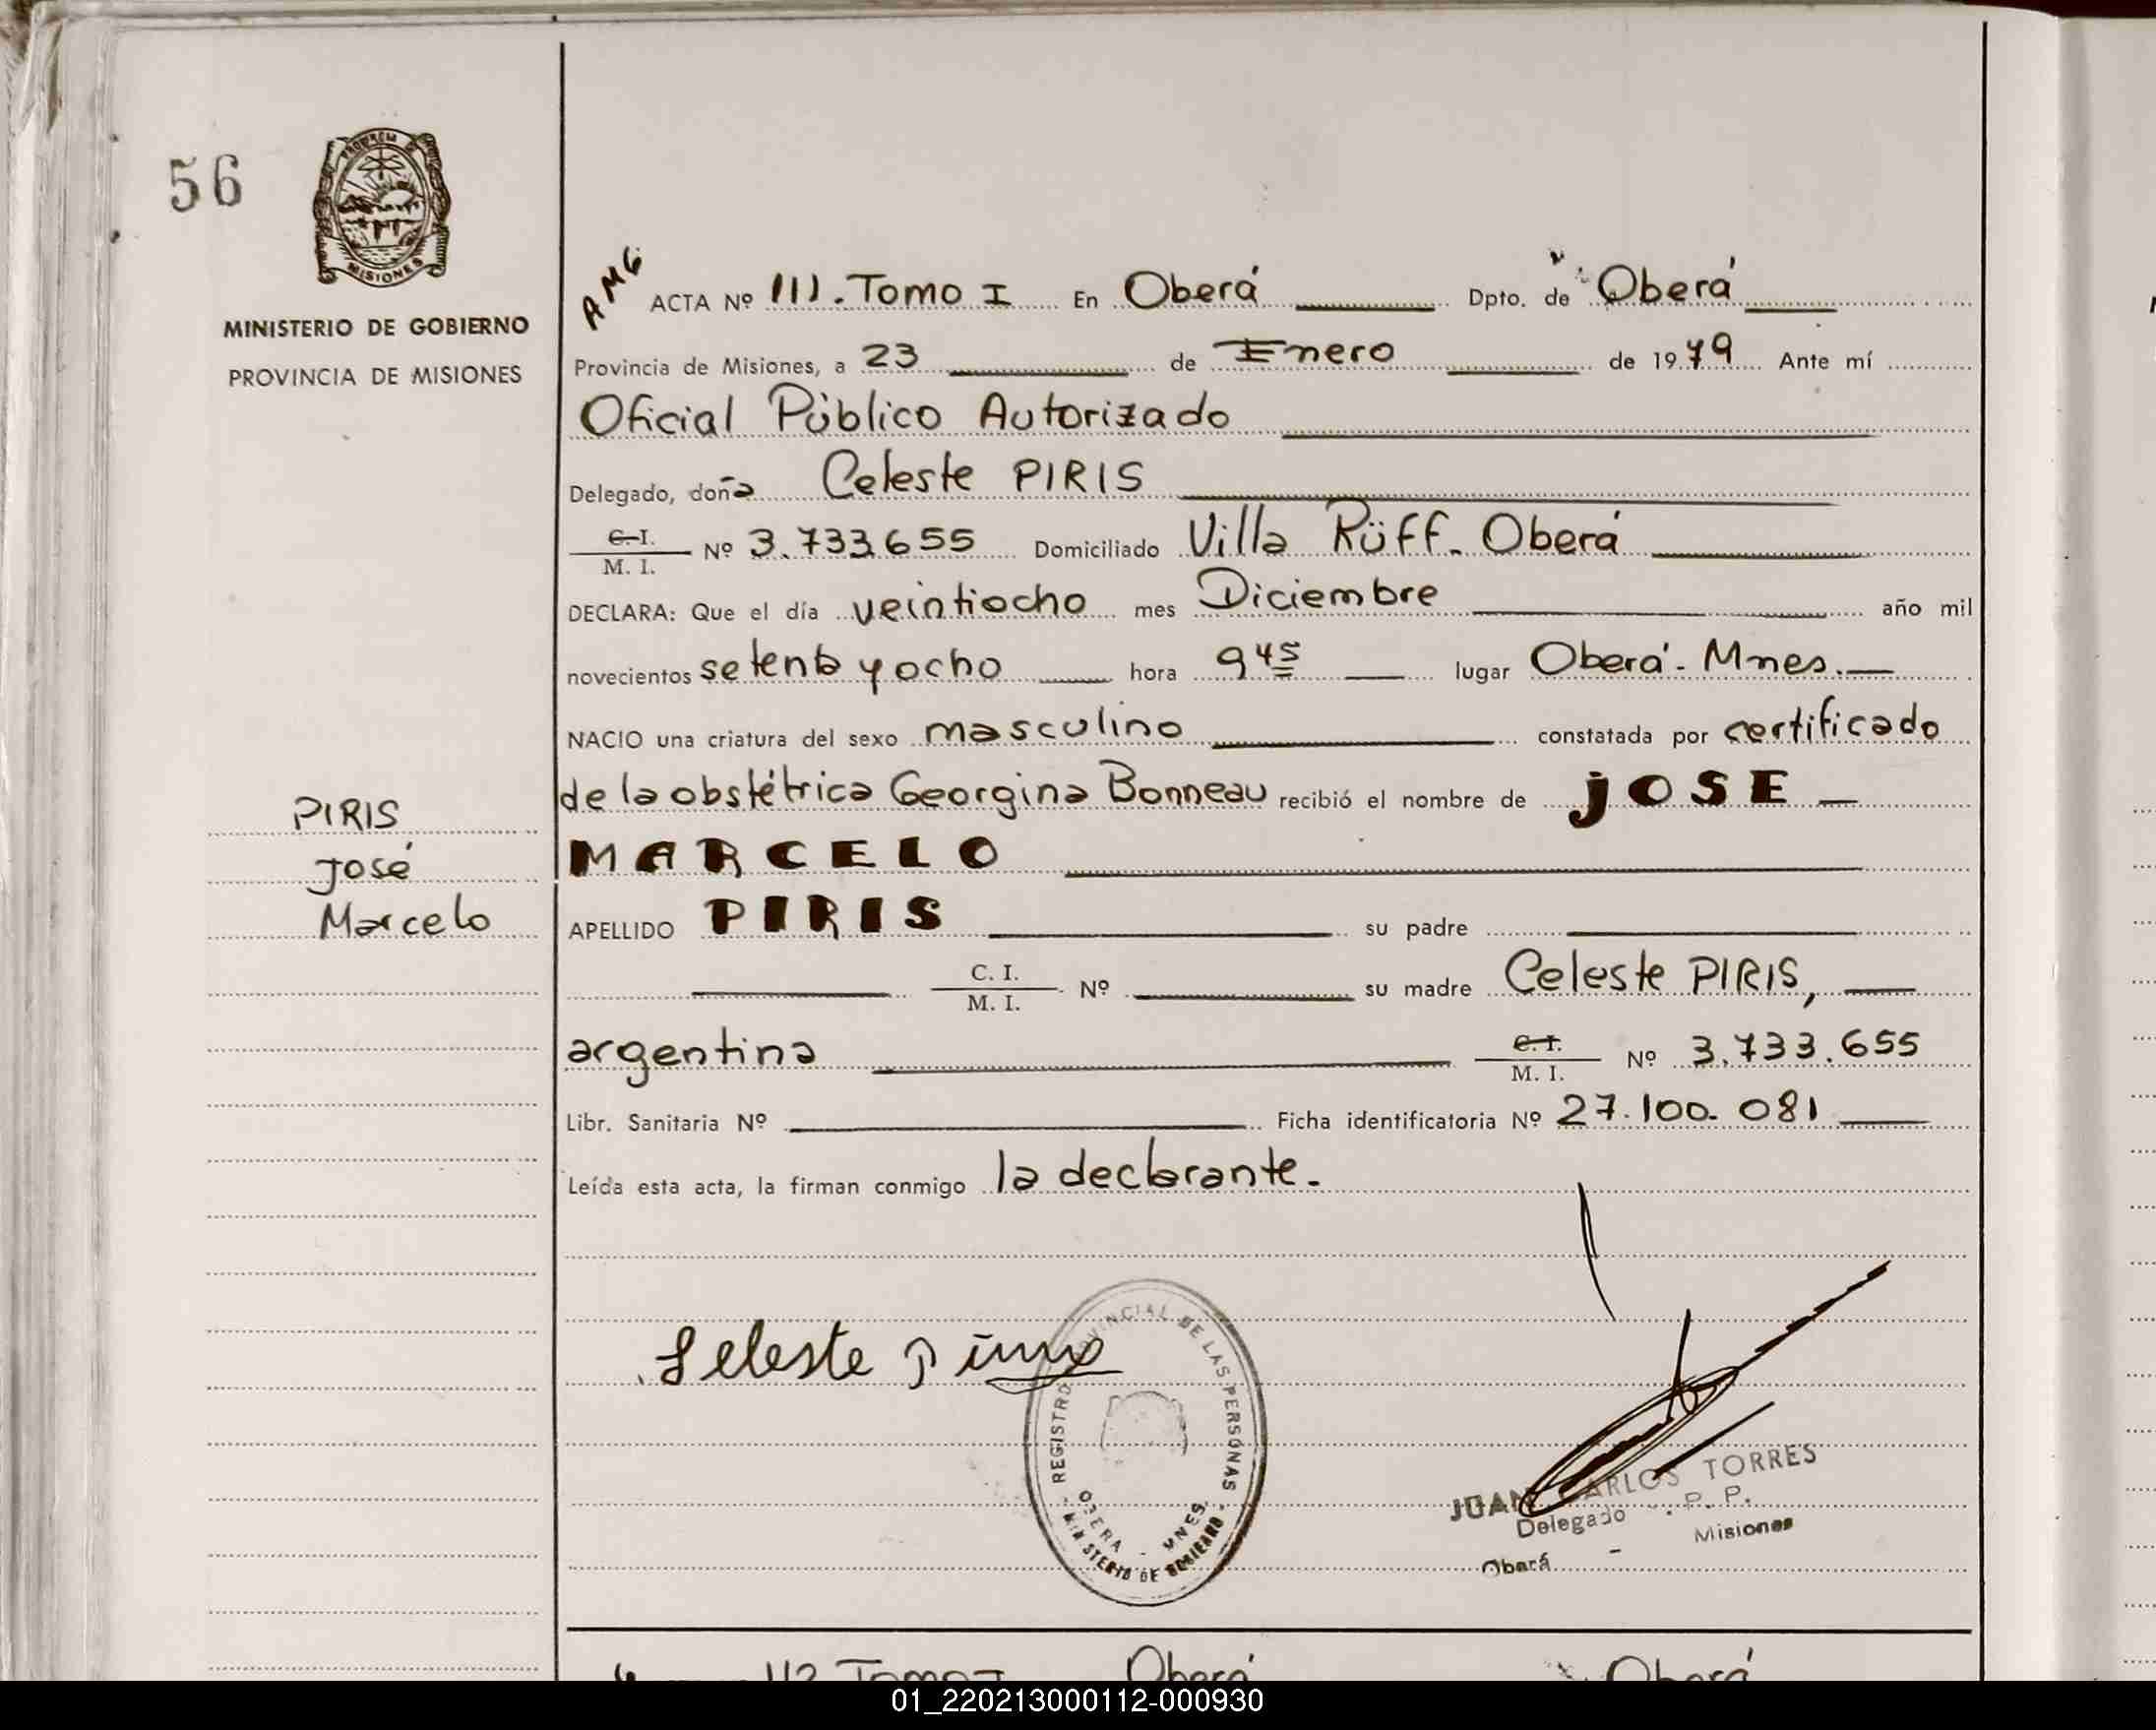 56
PROVINCIA DE
MISIONES
MINISTERIO DE GOBIERNO
PROVINCIA DE MISIONES
PIRIS
José
Marcelo
AMG
ACTA Nº 111. Tomo I En Oberá Dpto. de Oberá
Provincia de Misiones, a 23 de Enero de 1979 Ante mí
Oficial Público Autorizado
Delegado, doña Celeste PIRIS
C.I. M. I. Nº 3.733.655 Domiciliado Villa Rüff. Oberá
DECLARA: Que el día veintiocho mes Diciembre año mil
novecientos setenta y ocho hora 9 45 lugar Oberá. Mnes.
NACIO una criatura del sexo masculino constatada por certificado
de la obstétrica Georgina Bonneau recibió el nombre de JOSE
MARCELO
APELLIDO PIRIS su padre
C. I. M. I. Nº su madre Celeste PIRIS,
argentina C.I. M. I. Nº 3.733.655
Libr. Sanitaria Nº Ficha identificatoria Nº 27.100.081
Leída esta acta, la firman conmigo la declarante.
Celeste Piris
REGISTRO PROVINCIAL DE LAS PERSONAS
OBERA - MNES.
MINISTERIO DE GOBIERNO
JUAN CARLOS TORRES
Delegado P. P.
Oberá - Misiones
112 Tomo I Oberá Oberá
01_220213000112-000930